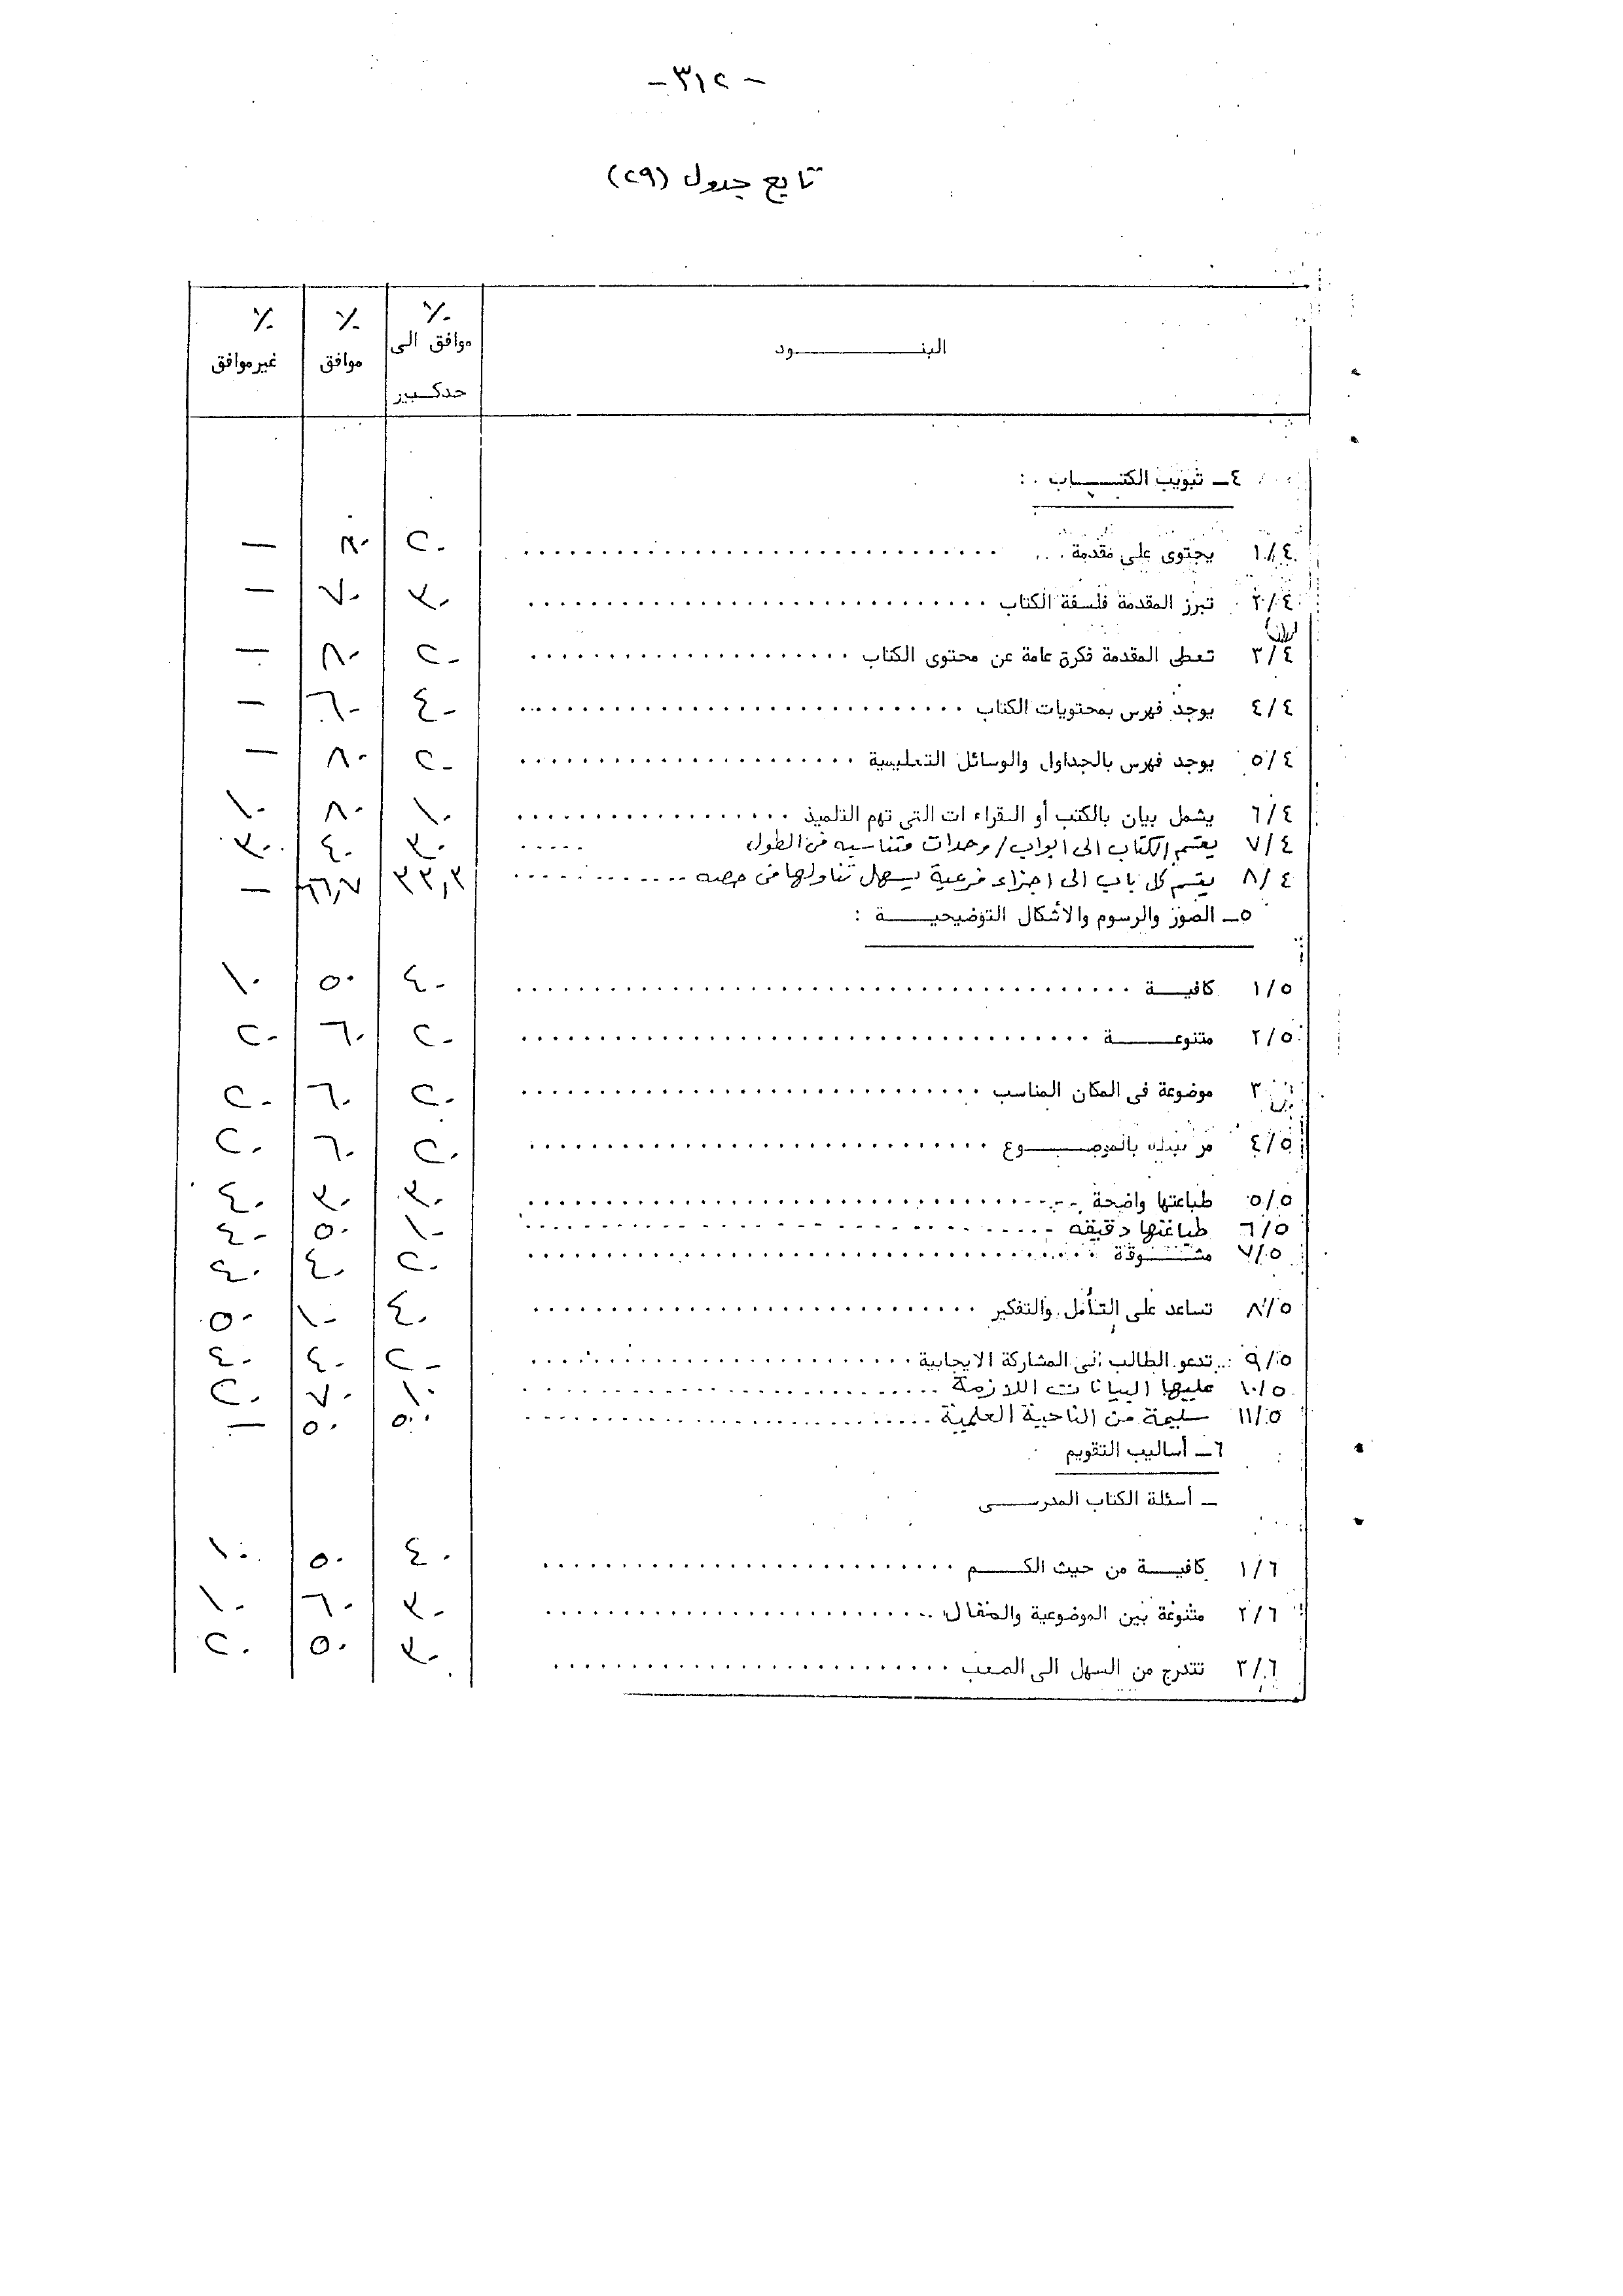 -٣١٢-
تابع جدول (٢٩)
البنـــــــود ٪ موافق الى حد كبير ٪ موافق ٪ غير موافق
٤- تبويب الكتـــاب :
١/٤ يحتوى على مقدمة ٢٠ ٨٠ —
٢/٤ تبرز المقدمة فلسفة الكتاب ٣٠ ٧٠ —
٣/٤ تعطى المقدمة فكرة عامة عن محتوى الكتاب ٢٠ ٨٠ —
٤/٤ يوجد فهرس بمحتويات الكتاب ٤٠ ٦٠ —
٥/٤ يوجد فهرس بالجداول والوسائل التعليمية ٢٠ ٨٠ —
٦/٤ يشمل بيان بالكتب أو القراءات التى تهم التلميذ ١٠ ٨٠ ١٠
٧/٤ يقسم الكتاب الى ابواب/ وحدات متناسبه فى الطول ٣٠ ٤٠ ٣٠
٨/٤ يقسم كل باب الى اجزاء فرعية يسهل تناولها فى حصه ٣٣,٣ ٦٦,٧ —
٥- الصور والرسوم والأشكال التوضيحيـــة :
١/٥ كافيـــة ٤٠ ٥٠ ١٠
٢/٥ متنوعـــة ٢٠ ٦٠ ٢٠
٣ موضوعة فى المكان المناسب ٢٠ ٦٠ ٢٠
٤/٥ بالموضـــوع ٢٠ ٦٠ ٢٠
٥/٥ طباعتها واضحة ٣٠ ٣٠ ٤٠
٦/٥ طباعتها دقيقه ١٠ ٥٠ ٤٠
٧/٥ مشـــوقة ٢٠ ٤٠ ٤٠
٨/٥ تساعد على التأمل والتفكير ٤٠ ١٠ ٥٠
٩/٥ تدعو الطالب الى المشاركة الايجابية ٢٠ ٤٠ ٤٠
١٠/٥ عليها البيانات اللازمة ١٠ ٧٠ ٢٠
١١/٥ سليمة من الناحية العلمية ٥٠ ٥٠ —
٦- أساليب التقويم
- أسئلة الكتاب المدرســـى
١/٦ كافيـــة من حيث الكـــم ٤٠ ٥٠ ١٠
٢/٦ متنوعة بين الموضوعية والمقال ٣٠ ٦٠ ١٠
٣/٦ تتدرج من السهل الى الصعب ٣٠ ٥٠ ٢٠